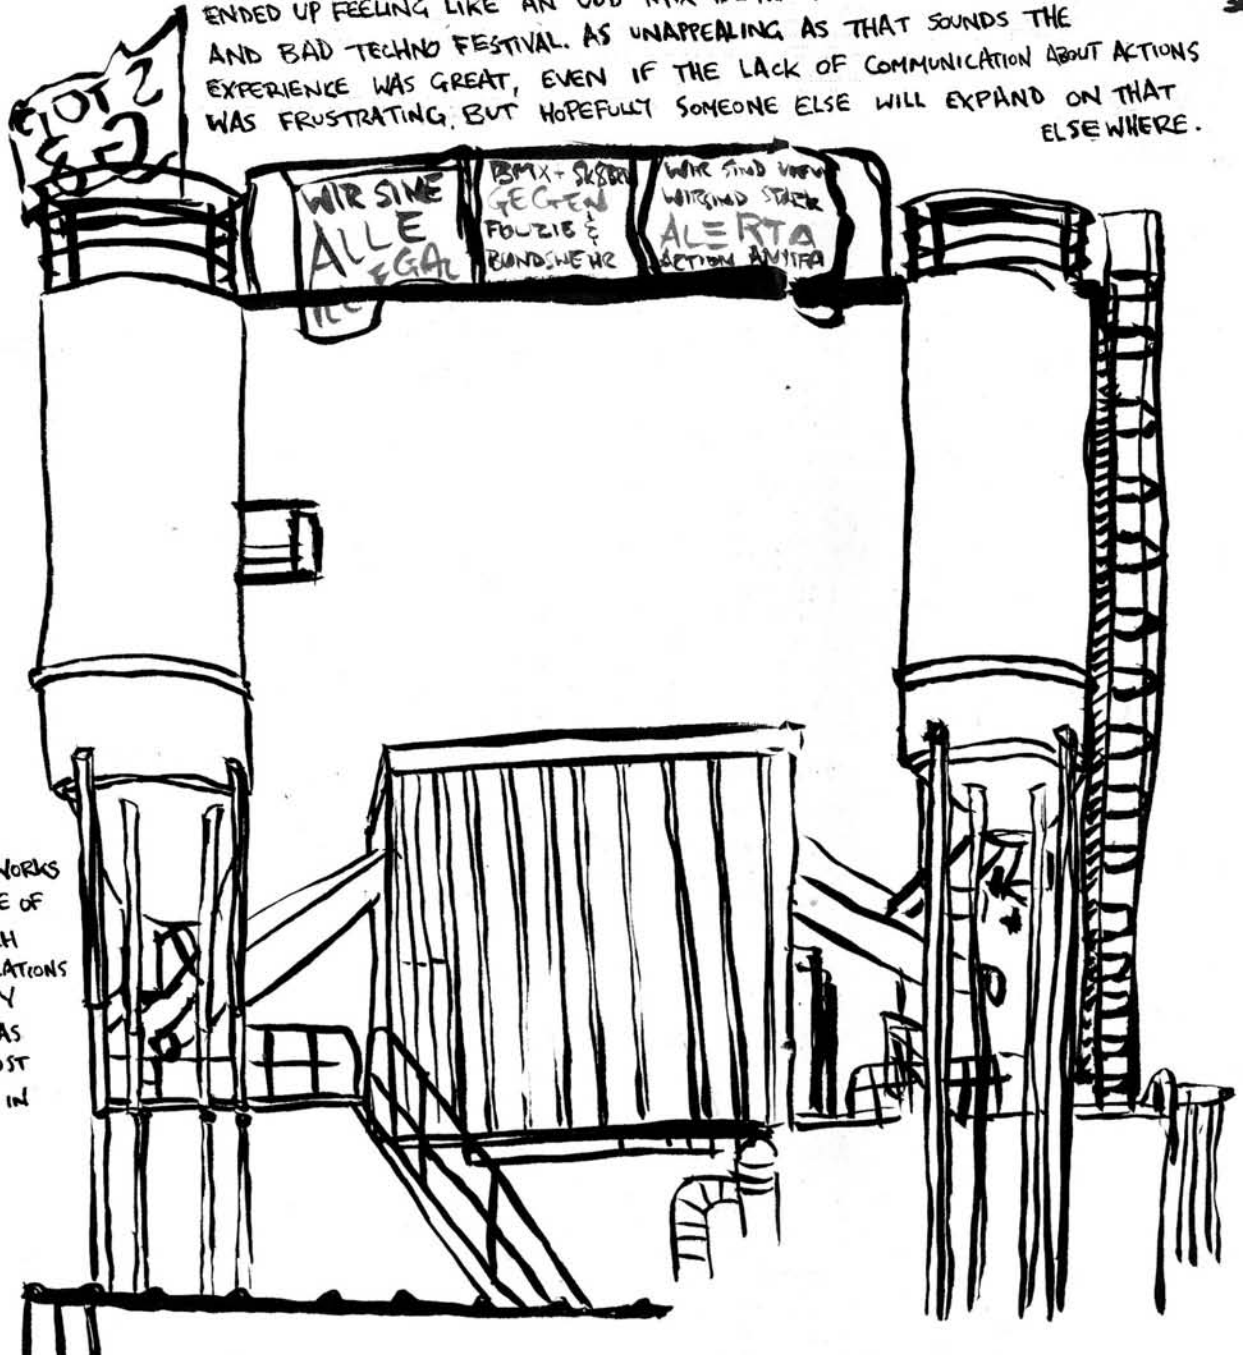 ENDED UP FEELING LIKE AN ODD MIX
AND BAD TECHNO FESTIVAL. AS UNAPPEALING AS THAT SOUNDS THE
EXPERIENCE WAS GREAT, EVEN IF THE LACK OF COMMUNICATION ABOUT ACTIONS
WAS FRUSTRATING. BUT HOPEFULLY SOMEONE ELSE WILL EXPAND ON THAT
ELSEWHERE.
WIR SINE
ALLE
BMX + SK8ER
GEGEN
&
BUNDSWEHR
WIR SIND
WIR SIND
ALERTA
ACTION ANTIFA
WORKS
E OF
H
ATIONS
Y
AS
OST
IN